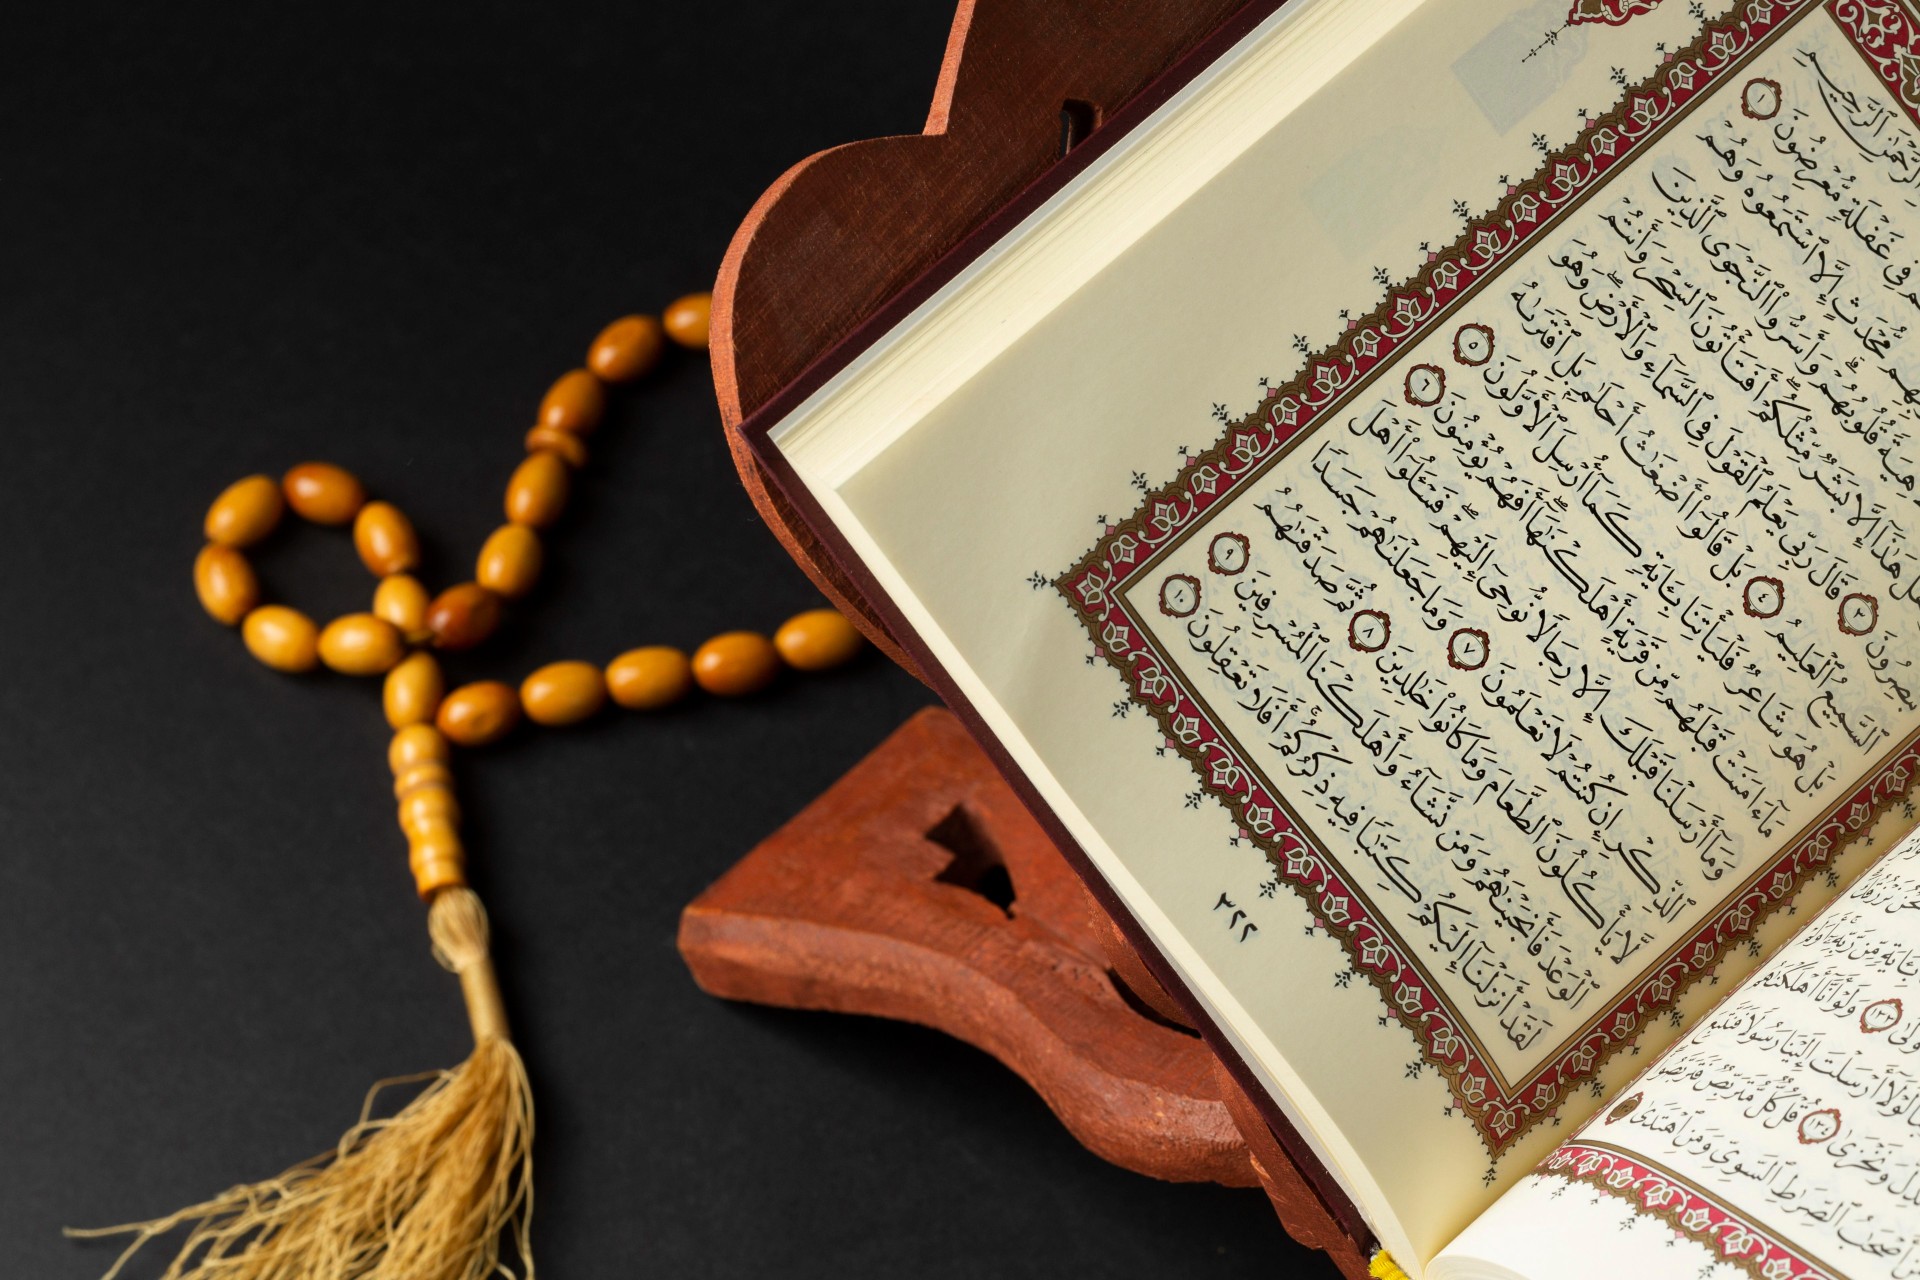 نَحْنُ نَرْزُقُكَ
بِـَٔايَةٍ مِّن رَّبِّهِۦٓ أَوَلَمْ
ٱلْأُولَىٰ ١٣٣ وَلَوْ أَنَّآ أَهْلَكْنَٰهُم
لَوْلَآ أَرْسَلْتَ إِلَيْنَا رَسُولًا فَنَتَّبِعَ
وَنَخْزَىٰ ١٣٤ قُلْ كُلٌّ مُّتَرَبِّصٌ فَتَرَبَّصُوا۟
أَصْحَٰبُ ٱلصِّرَٰطِ ٱلسَّوِىِّ وَمَنِ ٱهْتَدَىٰ
ٱلرَّحْمَٰنِ ٱلرَّحِيمِ
فِى غَفْلَةٍ مُّعْرِضُونَ ١
مُّحْدَثٍ إِلَّا ٱسْتَمَعُوهُ وَهُمْ
لَاهِيَةً قُلُوبُهُمْ وَأَسَرُّوا۟ ٱلنَّجْوَى ٱلَّذِينَ
هَلْ هَٰذَآ إِلَّا بَشَرٌ مِّثْلُكُمْ أَفَتَأْتُونَ ٱلسِّحْرَ وَأَنتُمْ
تُبْصِرُونَ ٣ قَالَ رَبِّى يَعْلَمُ ٱلْقَوْلَ فِى ٱلسَّمَآءِ وَٱلْأَرْضِ وَهُوَ
ٱلسَّمِيعُ ٱلْعَلِيمُ ٤ بَلْ قَالُوٓا۟ أَضْغَٰثُ أَحْلَٰمٍۭ بَلِ ٱفْتَرَىٰهُ
بَلْ هُوَ شَاعِرٌ فَلْيَأْتِنَا بِـَٔايَةٍ كَمَآ أُرْسِلَ ٱلْأَوَّلُونَ ٥
مَآ ءَامَنَتْ قَبْلَهُم مِّن قَرْيَةٍ أَهْلَكْنَٰهَآ أَفَهُمْ يُؤْمِنُونَ ٦
وَمَآ أَرْسَلْنَا قَبْلَكَ إِلَّا رِجَالًا نُّوحِىٓ إِلَيْهِمْ فَسْـَٔلُوٓا۟ أَهْلَ
ٱلذِّكْرِ إِن كُنتُمْ لَا تَعْلَمُونَ ٧ وَمَا جَعَلْنَٰهُمْ جَسَدًا
لَّا يَأْكُلُونَ ٱلطَّعَامَ وَمَا كَانُوا۟ خَٰلِدِينَ ٨ ثُمَّ صَدَقْنَٰهُمُ
ٱلْوَعْدَ فَأَنجَيْنَٰهُمْ وَمَن نَّشَآءُ وَأَهْلَكْنَا ٱلْمُسْرِفِينَ ٩
لَقَدْ أَنزَلْنَآ إِلَيْكُمْ كِتَٰبًا فِيهِ ذِكْرُكُمْ أَفَلَا تَعْقِلُونَ ١٠
٣٢٢